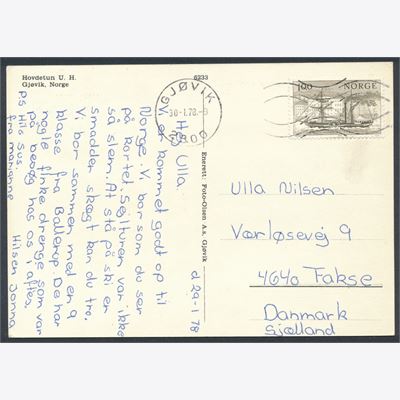 Hovdetun U. H.
Gjøvik, Norge
6233
GJØVIK
30-1.78.-9
2800
100 NORGE
Enerett: Foto-Olsen A.s, Gjøvik
d 29-1 78
Hej Ulla
Vi er kommet godt op til
Norge. Vi bor som du ser
på kortet. Sejlturen var ikke
så slem. At stå på ski er
smadder skægt kan du tro.
Vi bor sammen med en 9
klasse fra Ballerop. De har
nogle finke drenge som var
på besøg hos os i aftes.
Hilsen Janna
PS Hils Susi
fra marianne
Ulla Nilsen
Værløsevej 9
4640 Fakse
Danmark
Sjælland